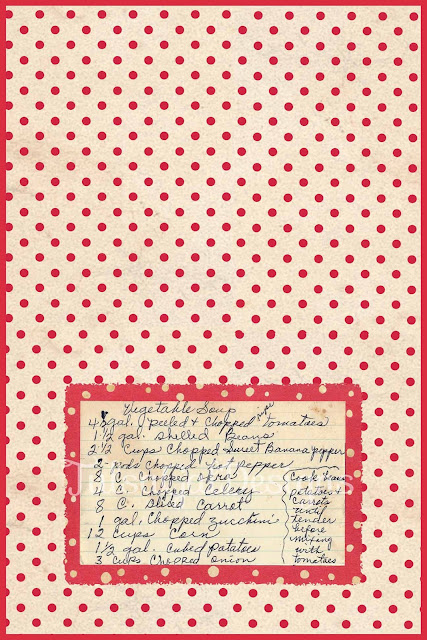 Vegetable Soup
gal. peeled & chopped ripe tomatoes
1 1/2 gal. Shelled Beans
2 1/2 Cups Chopped Sweet Banana pepper
2 pods chopped hot pepper
8 C. Chopped okra
4 C. Chopped Celery
8 C. Sliced Carrot
1 gal. Chopped Zucchini
12 Cups Corn
1 1/2 gal. Cubed Potatoes
3 Cups Chopped onion
Cook Beans
potatoes &
carrots
until
tender
before
mixing
with
tomatoes